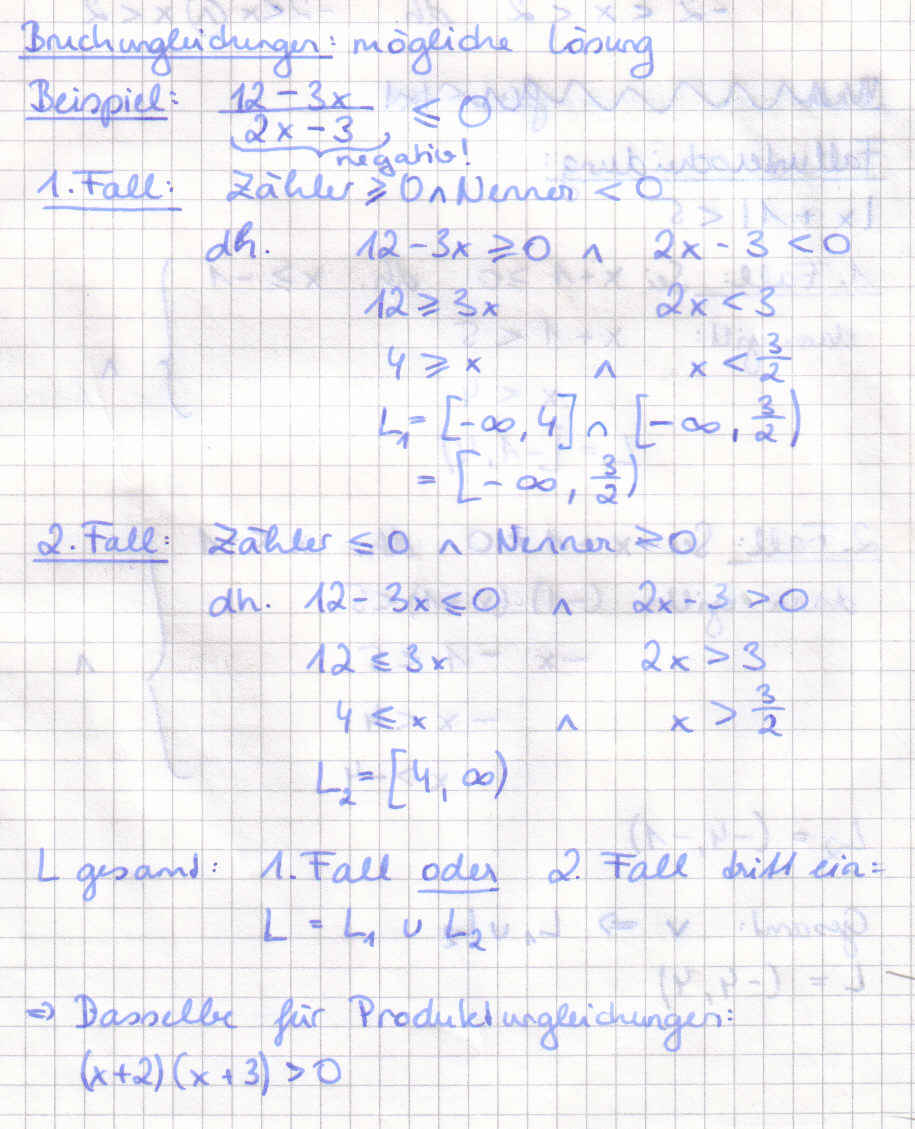 Bruchungleichungen: mögliche Lösung
Beispiel: (12-3x)/(2x-3) ≤ 0
negativ!
1. Fall: Zähler ≥ 0 ∧ Nenner < 0
dh. 12-3x ≥ 0 ∧ 2x-3 < 0
12 ≥ 3x 2x < 3
4 ≥ x ∧ x < 3/2
L₁ = [-∞, 4] ∩ [-∞, 3/2)
= [-∞, 3/2)
2. Fall: Zähler ≤ 0 ∧ Nenner ≥ 0
dh. 12-3x ≤ 0 ∧ 2x-3 > 0
12 ≤ 3x 2x > 3
4 ≤ x ∧ x > 3/2
L₂ = [4, ∞)
L gesamt: 1. Fall oder 2. Fall tritt ein:
L = L₁ ∪ L₂
⇒ Dasselbe für Produktungleichungen:
(x+2)(x+3) > 0